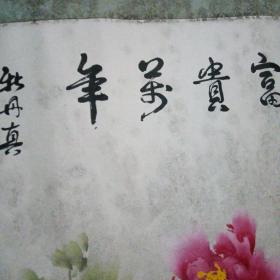 富貴萬年
牡丹真